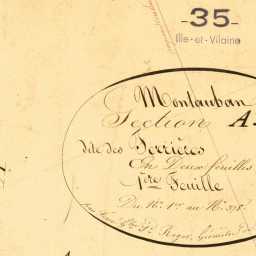 -35-
Ille-et-Vilaine
Montauban
Section A.
dite des Ferrières
En Deux feuilles
1ère Feuille
Du No. 1er au No. 378
par
Géomètre